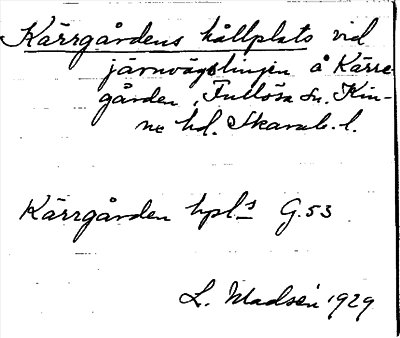 Kärrgårdens hållplats vid
järnvägslinjen å Kärr-
gården, Fullösa sn. Kin-
ne hd. Skarab. l.
Kärrgården hpls G. 53
L. Madsén 1929